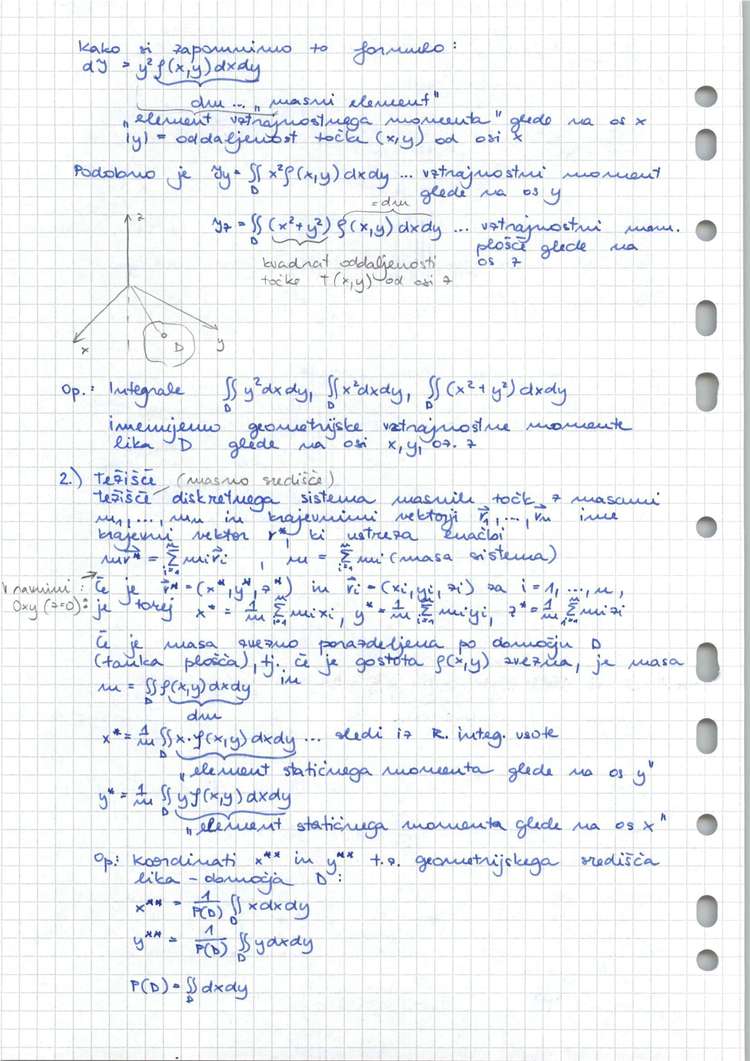 Kako si zapomnimo to formulo:
dJ = y² ρ(x,y) dxdy
dm ... "masni element"
"element vztrajnostnega momenta" glede na os x
|y| = oddaljenost točke (x,y) od osi x
Podobno je Jy = ∬_D x² ρ(x,y) dxdy ... vztrajnostni moment
glede na os y
= dm
Jz = ∬_D (x²+y²) ρ(x,y) dxdy ... vztrajnostni mom.
plošče glede na
os z
kvadrat oddaljenosti
točke T(x,y) od osi z
z
x
D
y
Op.: Integrale ∬_D y² dxdy, ∬_D x² dxdy, ∬_D (x²+y²) dxdy
imenujemo geometrijske vztrajnostne momente
lika D glede na osi x, y, oz. z
2.) Težišče (masno središče)
težišče diskretnega sistema masnih točk z masami
m₁, ..., mₙ in krajevnimi vektorji r⃗₁, ..., r⃗ₙ ima
krajevni vektor r⃗*, ki ustreza enačbi
m r⃗* = Σ_{i=1}^n mᵢ r⃗ᵢ, m = Σ_{i=1}^n mᵢ (masa sistema)
V ravnini
Oxy (z=0):
Če je r⃗* = (x*, y*, z*) in r⃗ᵢ = (xᵢ, yᵢ, zᵢ) za i = 1, ..., n,
je torej x* = 1/m Σ_{i=1}^n mᵢxᵢ, y* = 1/m Σ_{i=1}^n mᵢyᵢ, z* = 1/m Σ_{i=1}^n mᵢzᵢ
Če je masa zvezno porazdeljena po domočju D
(tanka plošča), tj. če je gostota ρ(x,y) zvezna, je masa
m
m = ∬_D ρ(x,y) dxdy
dm
x* = 1/m ∬_D x·ρ(x,y) dxdy ... sledi iz R. integ. vsote
"element statičnega momenta glede na os y"
y* = 1/m ∬_D y ρ(x,y) dxdy
"element statičnega momenta glede na os x"
Op.: Koordinati x** in y** t.z. geometrijskega središča
lika - domočja D:
x** = 1/P(D) ∬_D x dxdy
y** = 1/P(D) ∬_D y dxdy
P(D) = ∬_D dxdy